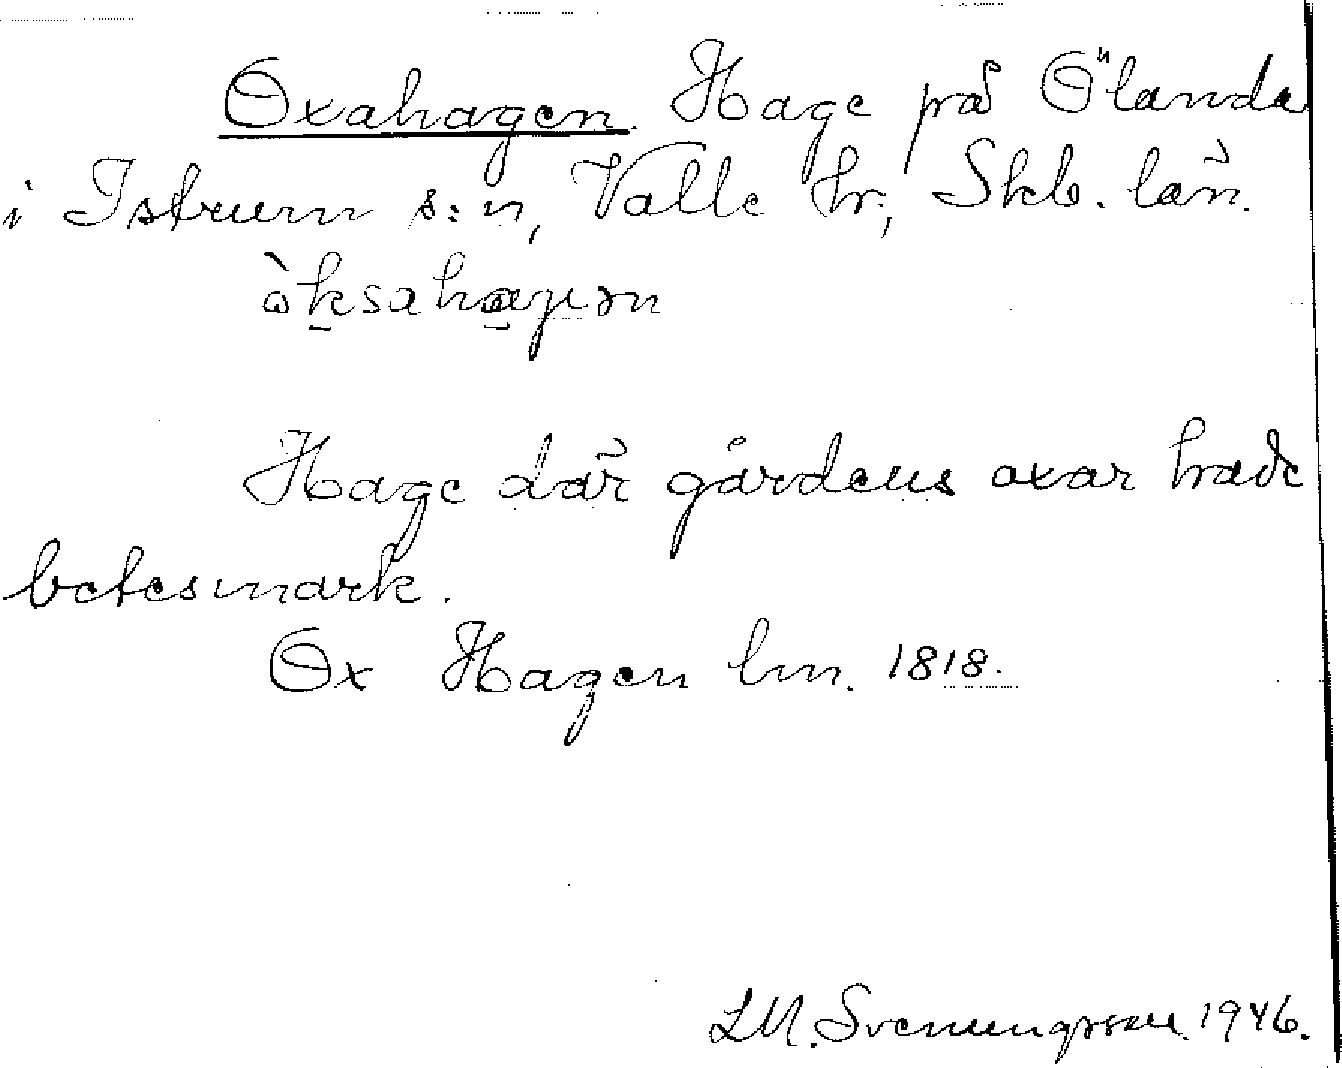 Oxahagen. Hage på Ölanda
i Istrum s:n, Valle hr, Skb. län.
òksahagən
Hage där gårdens oxar hade
betesmark.
Ox Hagen lm. 1818.
LM. Svenungsson 1946.